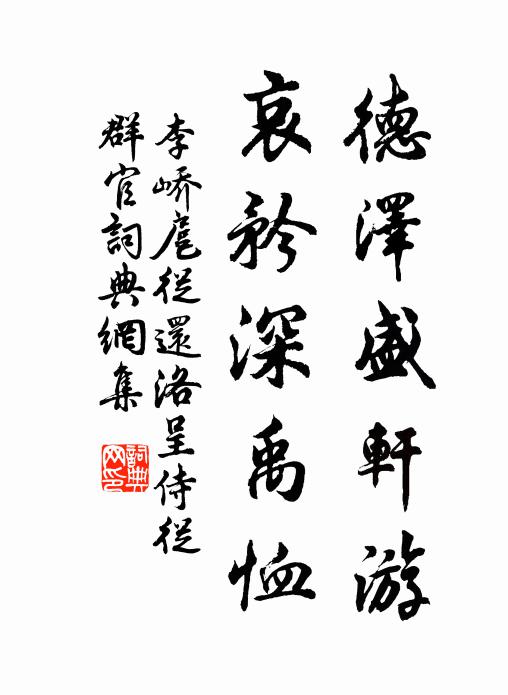 德澤盛軒游
哀矜深禹恤
李嶠扈從還洛呈侍從
群官詞典網集
詞典
网印